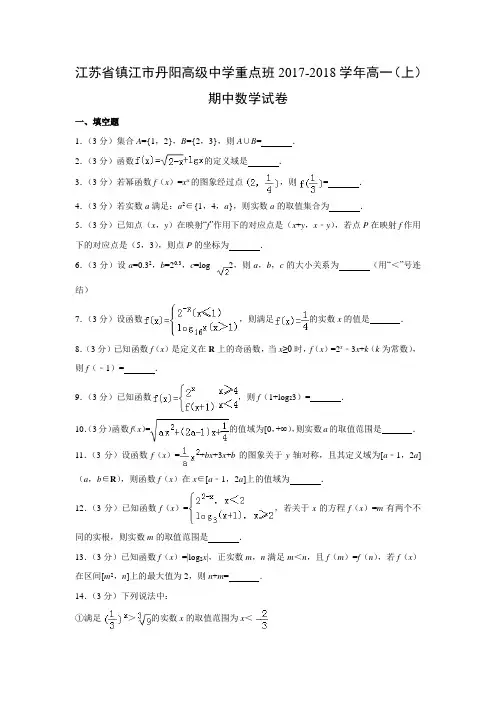 江苏省镇江市丹阳高级中学重点班 2017-2018 学年高一（上）
期中数学试卷
一、填空题
1.（3 分）集合 A={1，2}，B={2，3}，则 A∪B= ．
2.（3 分）函数f(x)=√(2-x)+lgx的定义域是 ．
3.（3 分）若幂函数 f（x）=xᵃ 的图象经过点(2, 1/4)，则f(1/3)= ．
4.（3 分）若实数 a 满足：a²∈{1，4，a}，则实数 a 的取值集合为 ．
5.（3 分）已知点（x，y）在映射“f”作用下的对应点是（x+y，x﹣y），若点 P 在映射 f 作用
下的对应点是（5，3），则点 P 的坐标为 ．
6.（3 分）设 a=0.3²，b=2^0.3，c=log 2，则 a，b，c 的大小关系为 （用“＜”号连
结）
7.（3 分）设函数f(x)={2^(-x)(x≤1) log₁₆(x)(x>1)，则满足f(x)=1/4的实数 x 的值是 ．
8.（3 分）已知函数 f（x）是定义在 R 上的奇函数，当 x≥0 时，f（x）=2ˣ﹣3x+k（k 为常数），
则 f（﹣1）= ．
9.（3 分）已知函数f(x)={2ˣ x≥4 f(x+1) x<4，则 f（1+log₂3）= ．
10.（3 分）函数f(x)=√(ax²+(2a-1)x+1/4)的值域为[0，+∞），则实数 a 的取值范围是 ．
11.（3 分）设函数 f（x）=1/a x²+bx+3x+b 的图象关于 y 轴对称，且其定义域为[a﹣1，2a]
（a，b∈R），则函数 f（x）在 x∈[a﹣1，2a]上的值域为 ．
12.（3 分）已知函数 f（x）={2^(2-x)，x<2 log₃(x+1)，x≥2，若关于 x 的方程 f（x）=m 有两个不
同的实根，则实数 m 的取值范围是 ．
13.（3 分）已知函数 f（x）=|log₂x|，正实数 m，n 满足 m＜n，且 f（m）=f（n），若 f（x）
在区间[m²，n]上的最大值为 2，则 n+m= ．
14.（3 分）下列说法中：
①满足(1/3)ˣ>∛9的实数 x 的取值范围为 x＜-2/3